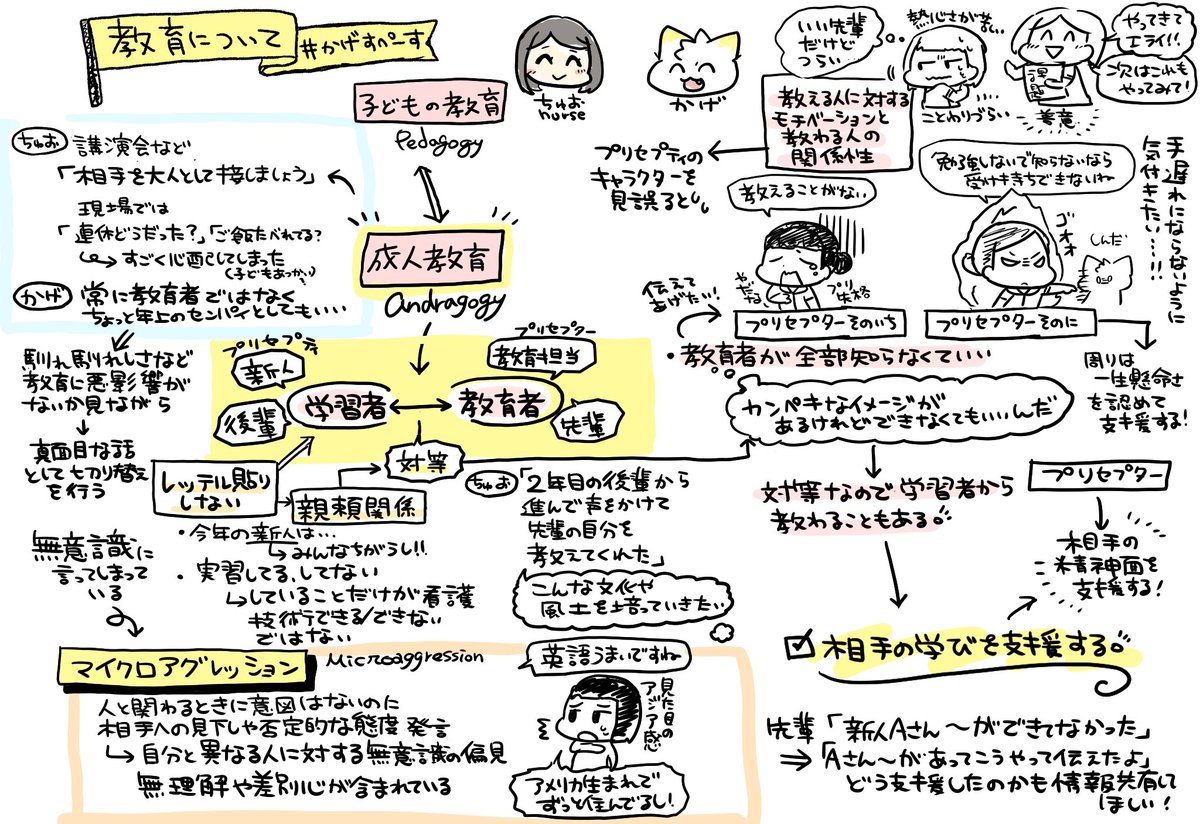 教育について
#かげすぺーす
ちゅお
nurse
かげ
子どもの教育
Pedagogy
成人教育
andragogy
ちゅお
講演会など
「相手を大人として接しましょう」
現場では
「連休どうだった?」「ご飯たべれてる?
すごく心配してしまった
(子どもあつかい)
かげ
常に教育者ではなく
ちょっと年上のセンパイとしてもいい
馴れ馴れしさなど
教育に悪影響が
ないか見ながら
真面目な話
として切り替え
を行う
プリセプティ
新人
後輩
学習者
プリセプター
教育担当
教育者
先輩
対等
レッテル貼り
しない
親頼関係
・今年の新人は…
みんなちがうし!!
・実習してる、してない
していることだけが看護
技術できる/できない
ではない
ちゅお
「2年目の後輩から
進んで声をかけて
先輩の自分を
教えてくれた」
こんな文化や
風土を培っていきたい
無意識に
言ってしまって
いる
マイクロアグレッション
Microaggression
人と関わるときに意図はないのに
相手への見下しや否定的な態度 発言
自分と異なる人に対する無意識の偏見
無理解や差別心が含まれている
英語うまいですね
見た目の
アジア感
アメリカ生まれで
ずっと住んでるし!
いい先輩
だけど
つらい
熱心さが苦い
ことわりづらい
やってきて
エライ!!
次はこれも
やってみて!
課題
善意
教える人に対する
モチベーションと
教わる人の
関係性
プリセプティの
キャラクターを
見誤ると
教えることがない
やだな
プリ
失格
プリセプターそのいち
勉強しないで知らないなら
受け持ちできないね
ゴオォ
しんだ
プリセプターそのに
手遅れにならないように
気付きたい…!!
周りは
一生懸命さ
を認めて
支援する!
伝えて
あげたい!
・教育者が全部知らなくていい
カンペキなイメージが
あるけれどできなくてもいいんだ
対等なので学習者から
教わることもある。
プリセプター
相手の
精神面を
支援する!
相手の学びを支援する。
先輩「新人Aさん〜ができてなかった」
⇒「Aさん〜があってこうやって伝えたよ」
どう支援したのかも情報共有して
ほしい!